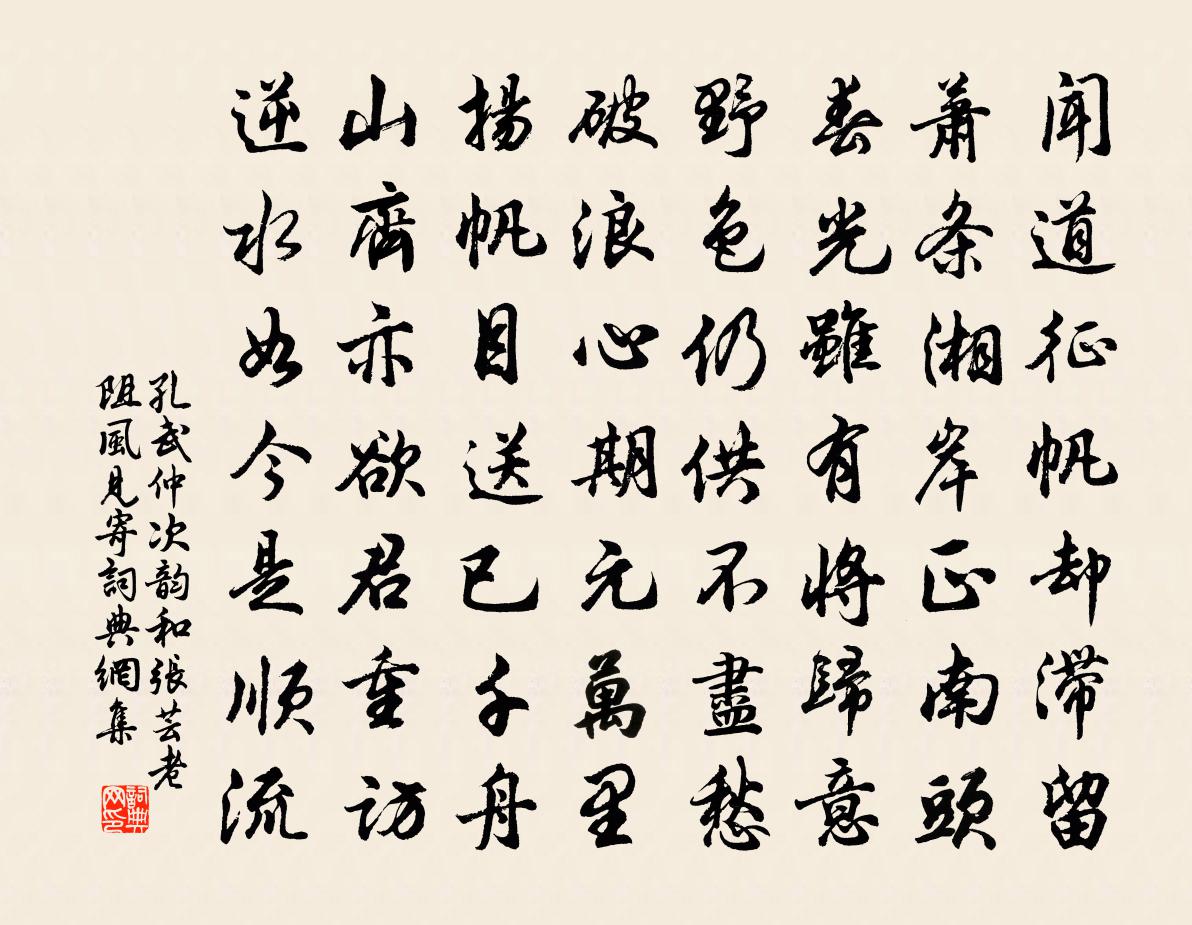 闻道征帆却滞留
萧条湘岸正南頭
春光雖有將歸意
野色仍供不盡愁
破浪心期元萬里
揚帆目送已千舟
山齋亦欲君重访
逆水如今是顺流
孔武仲次韵和張芸老
阻風見寄詞典網集
詞典
网印